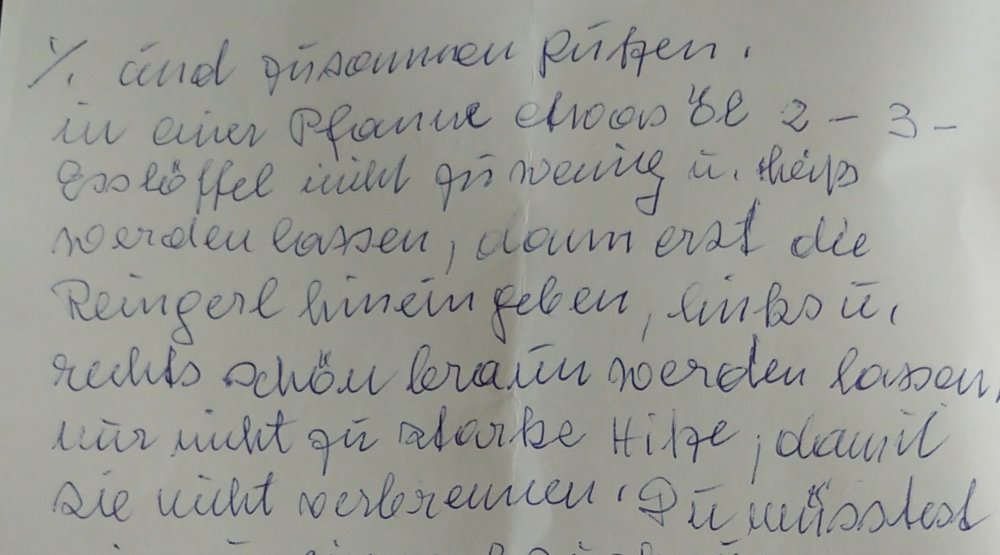 ·/. und zusammen
in einer Pfanne etwas Öl 2 - 3 -
Esslöffel nicht zu wenig u. heiß
werden lassen, dann erst die
Reingerl hinein geben, links u.
rechts schön braun werden lassen,
nur nicht zu starke Hitze, damit
sie nicht verbrennen. Du müsstest